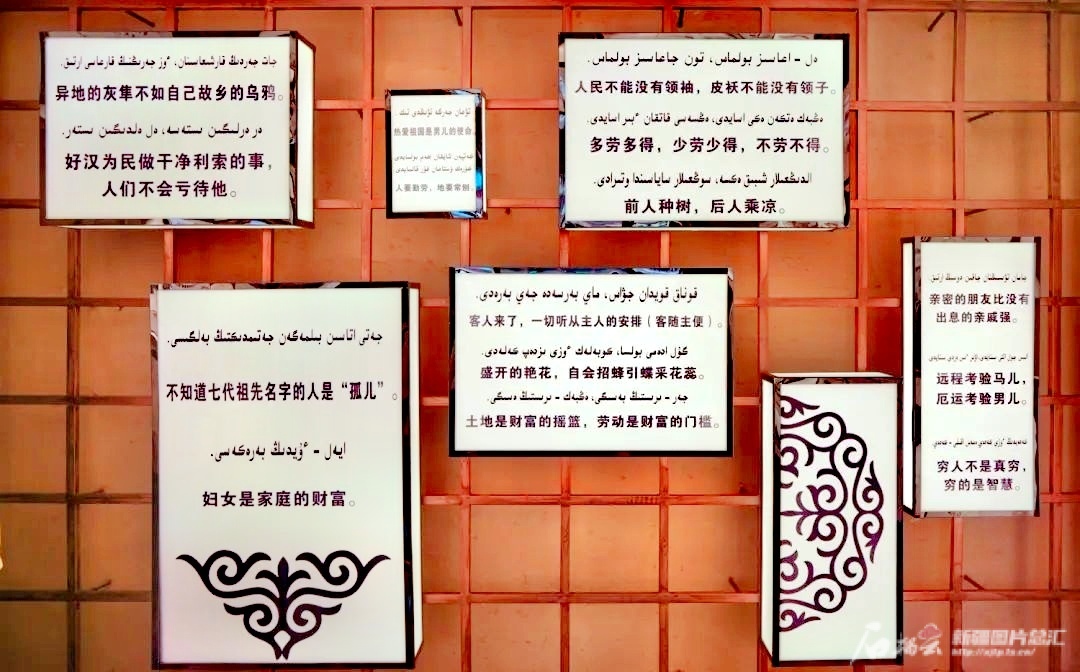 جات جەردىڭ قارشىعاسىنان، ٴوز جەرىڭنىڭ قارعاسى ارتىق.
异地的灰隼不如自己故乡的乌鸦。
好汉为民做干净利索的事，
人们不会亏待他。
热爱祖国是男儿的使命。
人要勤劳，地要常刨。
ەل - اعاسىز بولماس، تون جاعاسىز بولماس.
人民不能没有领袖，皮袄不能没有领子。
多劳多得，少劳少得，不劳不得。
前人种树，后人乘凉。
جەتى اتاسىن بىلمەگەن جەتىمدىكتىڭ بەلگىسى.
不知道七代祖先名字的人是“孤儿”。
ايەل - ٴۇيدىڭ بەرەكەسى.
妇女是家庭的财富。
قوناق قويدان جۋاس، ماي بەرسەدە جەي بەرەدى.
客人来了，一切听从主人的安排（客随主便）。
گۇل ادەمى بولسا، كوبەلەك ٴوزى ىزدەپ كەلەدى.
盛开的艳花，自会招蜂引蝶采花蕊。
جەر - ىرىستىڭ بەسىگى، ەڭبەك - ىرىستىڭ ەسىگى.
土地是财富的摇篮，劳动是财富的门槛。
亲密的朋友比没有
出息的亲戚强。
远程考验马儿，
厄运考验男儿。
穷人不是真穷，
穷的是智慧。
石榴云
新疆图片总汇
http://xjtp.ts.cn/